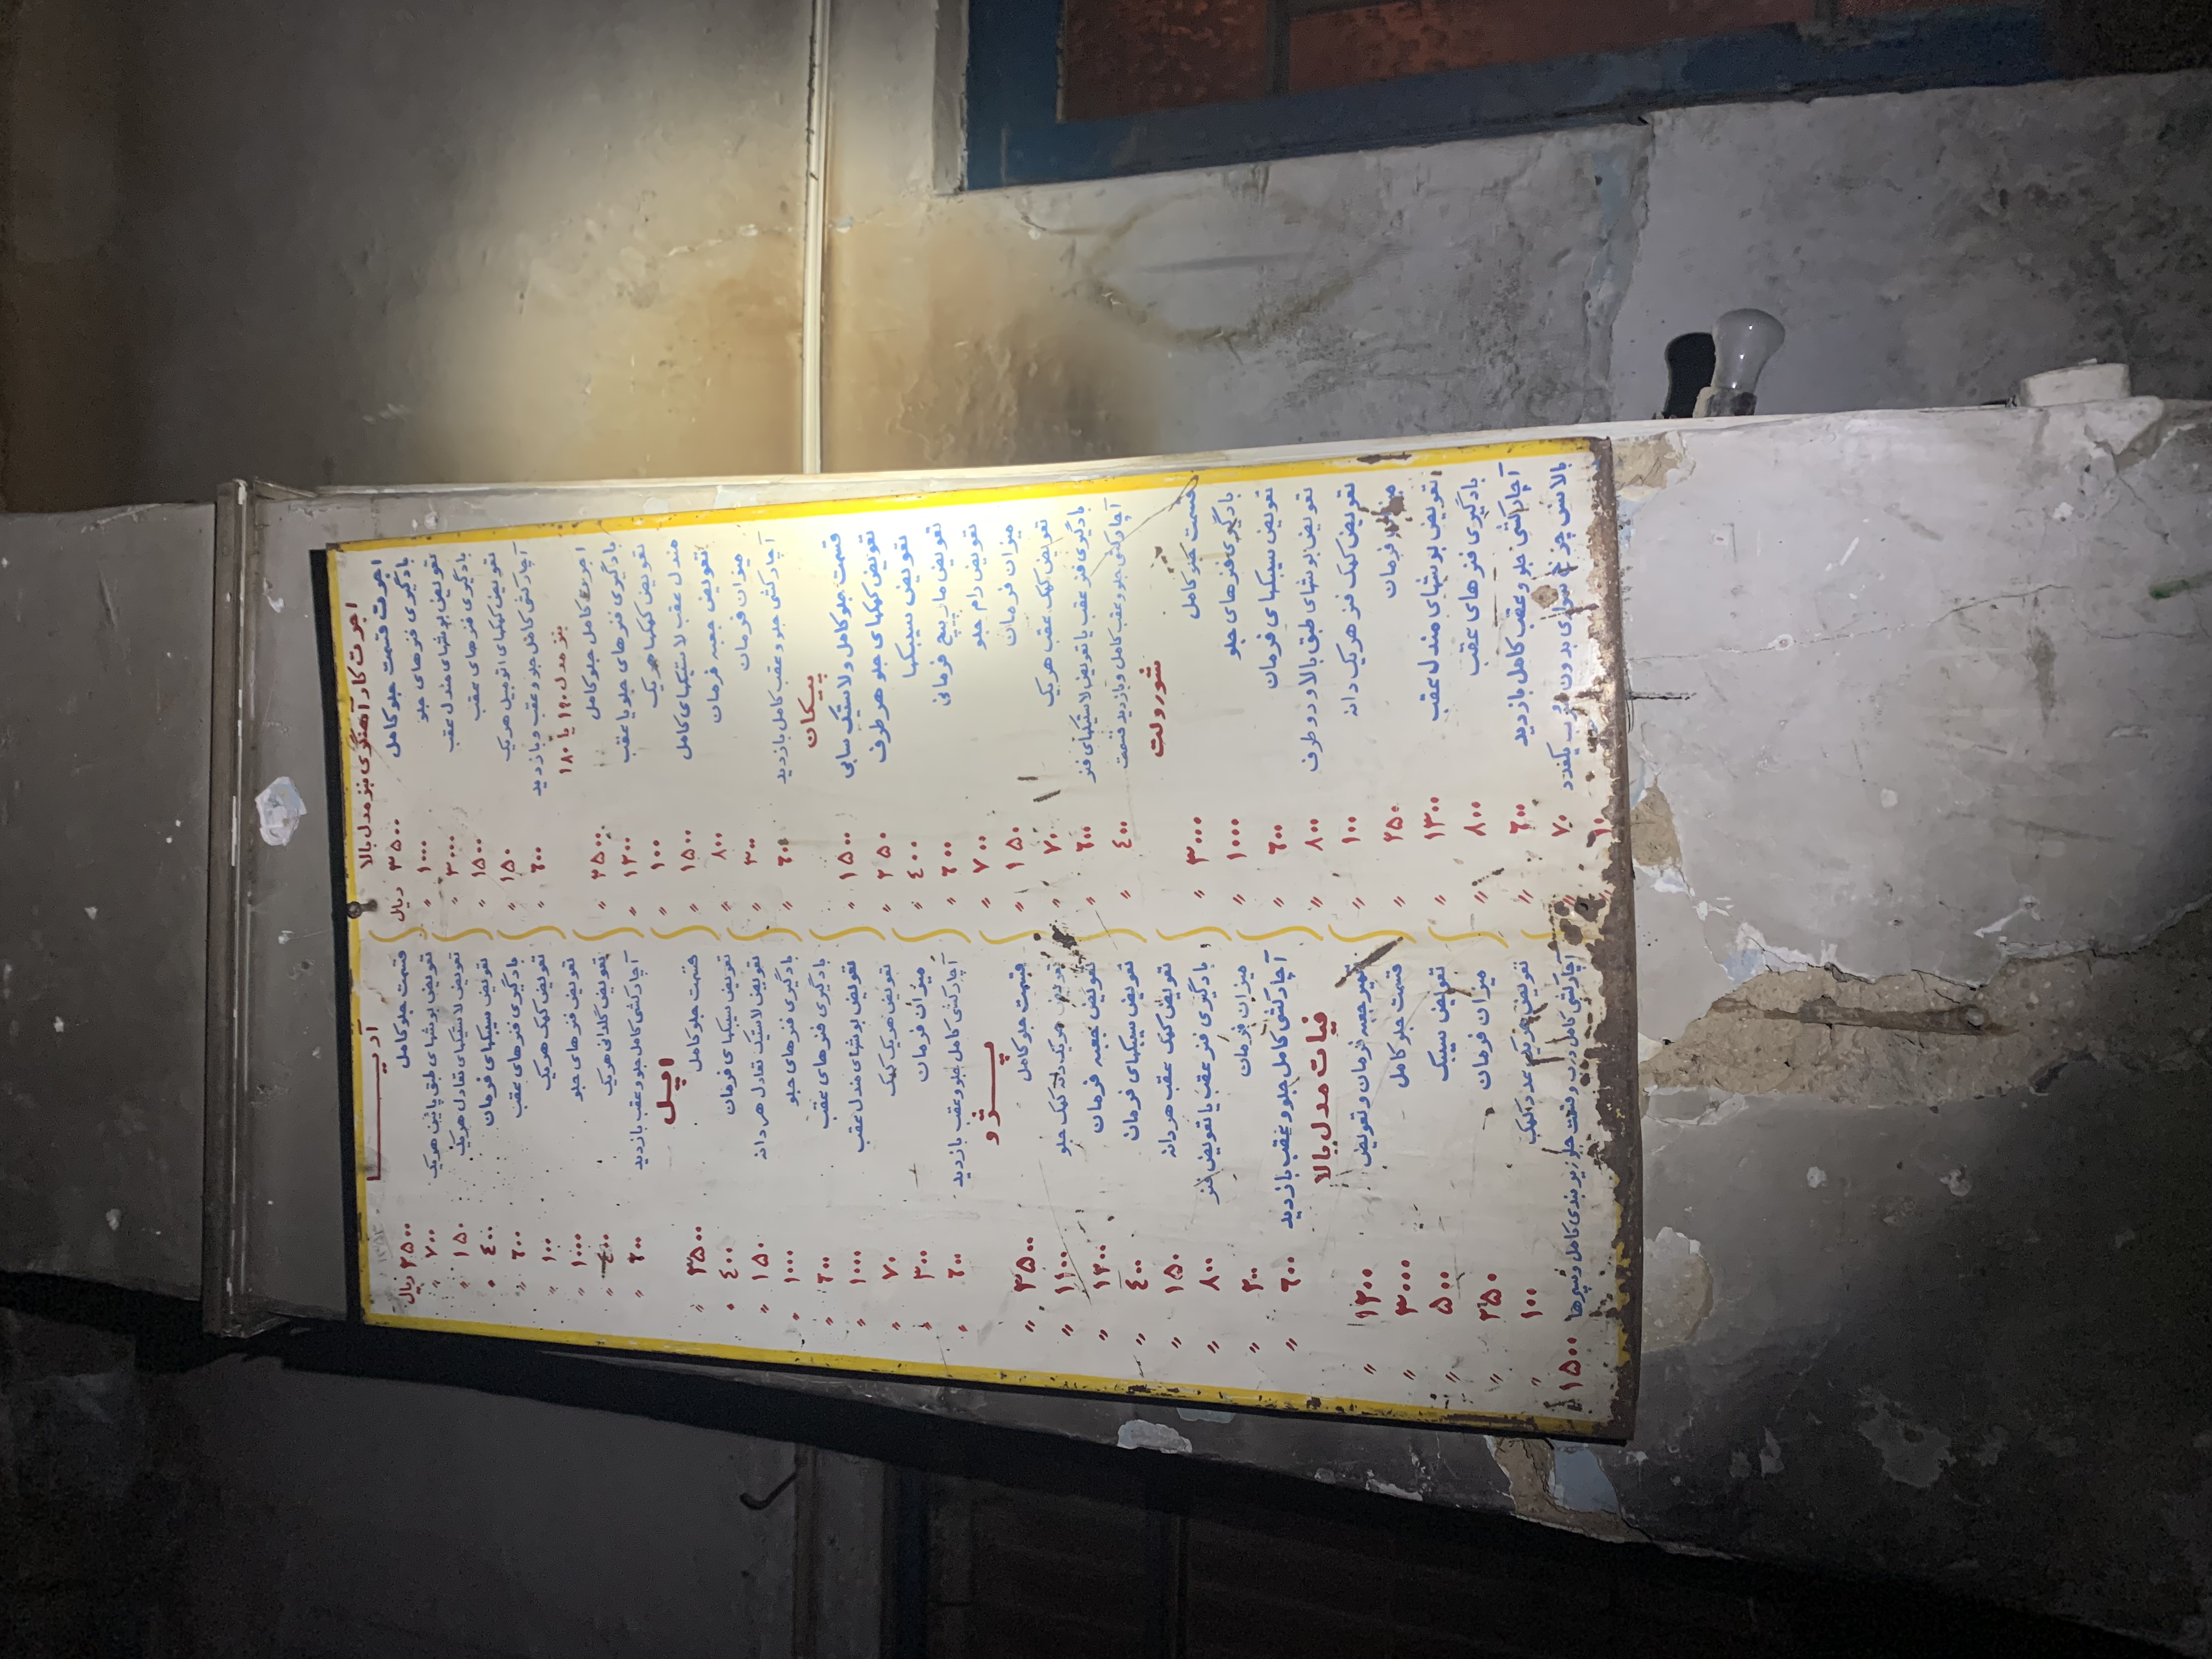 اجرت کار آهنگری بنز مدل بالا
اجرت قسمت جلو کامل ۳۵۰۰ ریال
بادگیری فنرهای جلو ۱۰۰۰ "
تعویض بوشهای مندل عقب ۲۰۰۰ "
بادگیری فنرهای عقب ۱۵۰۰ "
تعویض کپکهای اتومبیل هریک ۱۵۰ "
آچارکشی کامل جلو و عقب و بازدید ۶۰۰ "
بنز مدل ۱۹۰ یا ۱۸۰
اجرت کامل جلو کامل ۲۵۰۰ "
بادگیری فنرهای جلو یا عقب ۱۲۰۰ "
تعویض کپکها هریک ۱۰۰ "
مندل عقب لاستیکهای کامل ۱۵۰۰ "
تعویض جعبه فرمان ۸۰۰ "
میزان فرمان ۳۰۰ "
آچارکشی جلو و عقب کامل بازدید ۶۰۰ "
پیکان
قسمت جلو کامل و لاستیک سابی ۱۵۰۰ "
تعویض کپکهای جلو هر طرف ۲۵۰ "
تعویض سیبکها ۴۰۰ "
تعویض مارپیچ فرمانی ۶۰۰ "
تعویض رام جلو ۷۰۰ "
میزان فرمان ۱۵۰ "
تعویض کپک عقب هریک ۷۰ "
بادگیری فنر عقب یا تعویض لاستیکهای فنر ۶۰۰ "
آچارکشی جلو و عقب کامل و بازدید قسمت ۴۰۰ "
شورولت
قسمت جلو کامل ۳۰۰۰ "
بادگیری فنرهای جلو ۱۰۰۰ "
تعویض سیبکهای فرمان ۶۰۰ "
تعویض بوشهای طبق بالا و دو طرف ۸۰۰ "
تعویض کپک فنر هریک دانه ۱۰۰ "
میزان فرمان ۲۵۰ "
تعویض بوشهای مندل عقب ۱۳۰۰ "
بادگیری فنرهای عقب ۸۰۰ "
آچارکشی جلو و عقب کامل بازدید ۶۰۰ "
بالانس چرخ بدون سرب یکعدد ۷۰ "
آریا
قسمت جلو کامل ۲۵۰۰ ریال
تعویض بوشهای طبق پائین هریک ۷۰۰ "
تعویض لاستیکهای تعادل هریک ۱۵۰ "
تعویض سیبکهای فرمان ۴۰۰ "
بادگیری فنرهای عقب ۶۰۰ "
تعویض کپک هریک ۱۰۰ "
تعویض فنرهای جلو ۱۰۰۰ "
تعویض گلدانی هریک ۴۰۰ "
آچارکشی کامل جلو و عقب بازدید ۶۰۰ "
اپل
قسمت جلو کامل ۳۵۰۰ "
تعویض سیبکهای فرمان ۴۰۰ "
تعویض لاستیک تعادل هر دانه ۱۵۰ "
بادگیری فنرهای جلو ۱۰۰۰ "
بادگیری فنرهای عقب ۶۰۰ "
تعویض بوشهای مندل عقب ۱۰۰۰ "
تعویض هریک کپک ۷۰ "
میزان فرمان ۳۰۰ "
آچارکشی کامل جلو و عقب بازدید ۶۰۰ "
پژو
قسمت جلو کامل ۳۵۰۰ "
تعویض هریک دانه کپک جلو ۱۱۰۰ "
تعویض جعبه فرمان ۱۳۰۰ "
تعویض سیبکهای فرمان ۴۰۰ "
تعویض کپک عقب هر دانه ۱۵۰ "
بادگیری فنر عقب یا تعویض فنر ۸۰۰ "
میزان فرمان ۲۰۰ "
آچارکشی کامل جلو و عقب بازدید ۶۰۰ "
فیات مدل بالا
تعمیر جعبه فرمان و تعویض ۱۲۰۰ "
قسمت جلو کامل ۳۰۰۰ "
تعویض سیبک ۵۰۰ "
میزان فرمان ۲۵۰ "
تعویض هریک عدد کپک ۱۰۰ "
آچارکشی کامل درب و قسمت جلو زیربندی کامل و سپرها ۱۵۰۰